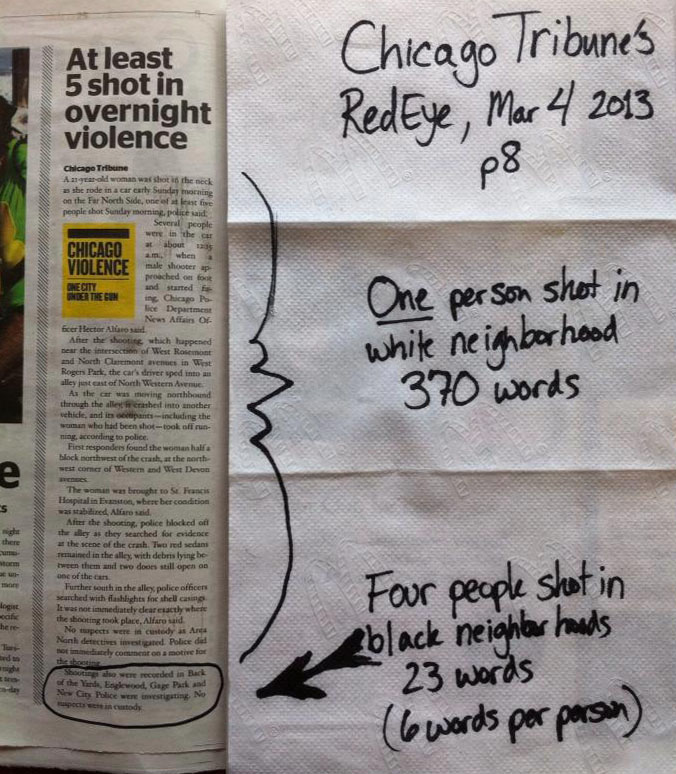 At least
5 shot in
overnight
violence
Chicago Tribune
A 21-year-old woman was shot in the neck
as she rode in a car early Sunday morning
on the Far North Side, one of at least five
people shot Sunday morning, police said.
Several people
were in the car
at about 12:15
a.m., when a
male shooter ap-
proached on foot
and started fir-
ing, Chicago Po-
lice Department
News Affairs Of-
ficer Hector Alfaro said.
CHICAGO
VIOLENCE
ONE CITY
UNDER THE GUN
After the shooting, which happened
near the intersection of West Rosemont
and North Claremont avenues in West
Rogers Park, the car's driver sped into an
alley just east of North Western Avenue.
As the car was moving northbound
through the alley, it crashed into another
vehicle, and its occupants—including the
woman who had been shot—took off run-
ning, according to police.
First responders found the woman half a
block northwest of the crash, at the north-
west corner of Western and West Devon
avenues.
The woman was brought to St. Francis
Hospital in Evanston, where her condition
was stabilized, Alfaro said.
After the shooting, police blocked off
the alley as they searched for evidence
at the scene of the crash. Two red sedans
remained in the alley, with debris lying be-
tween them and two doors still open on
one of the cars.
Further south in the alley, police officers
searched with flashlights for shell casings.
It was not immediately clear exactly where
the shooting took place, Alfaro said.
No suspects were in custody as Area
North detectives investigated. Police did
not immediately comment on a motive for
the shooting.
Shootings also were recorded in Back
of the Yards, Englewood, Gage Park and
New City. Police were investigating. No
suspects were in custody.
Chicago Tribune's
RedEye, Mar 4 2013
p8
One person shot in
white neighborhood
370 words
Four people shot in
black neighborhoods
23 words
(6 words per person)